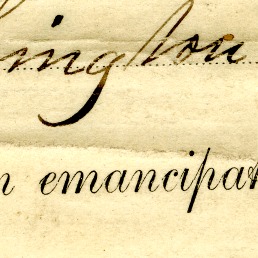 ington
n emancipat